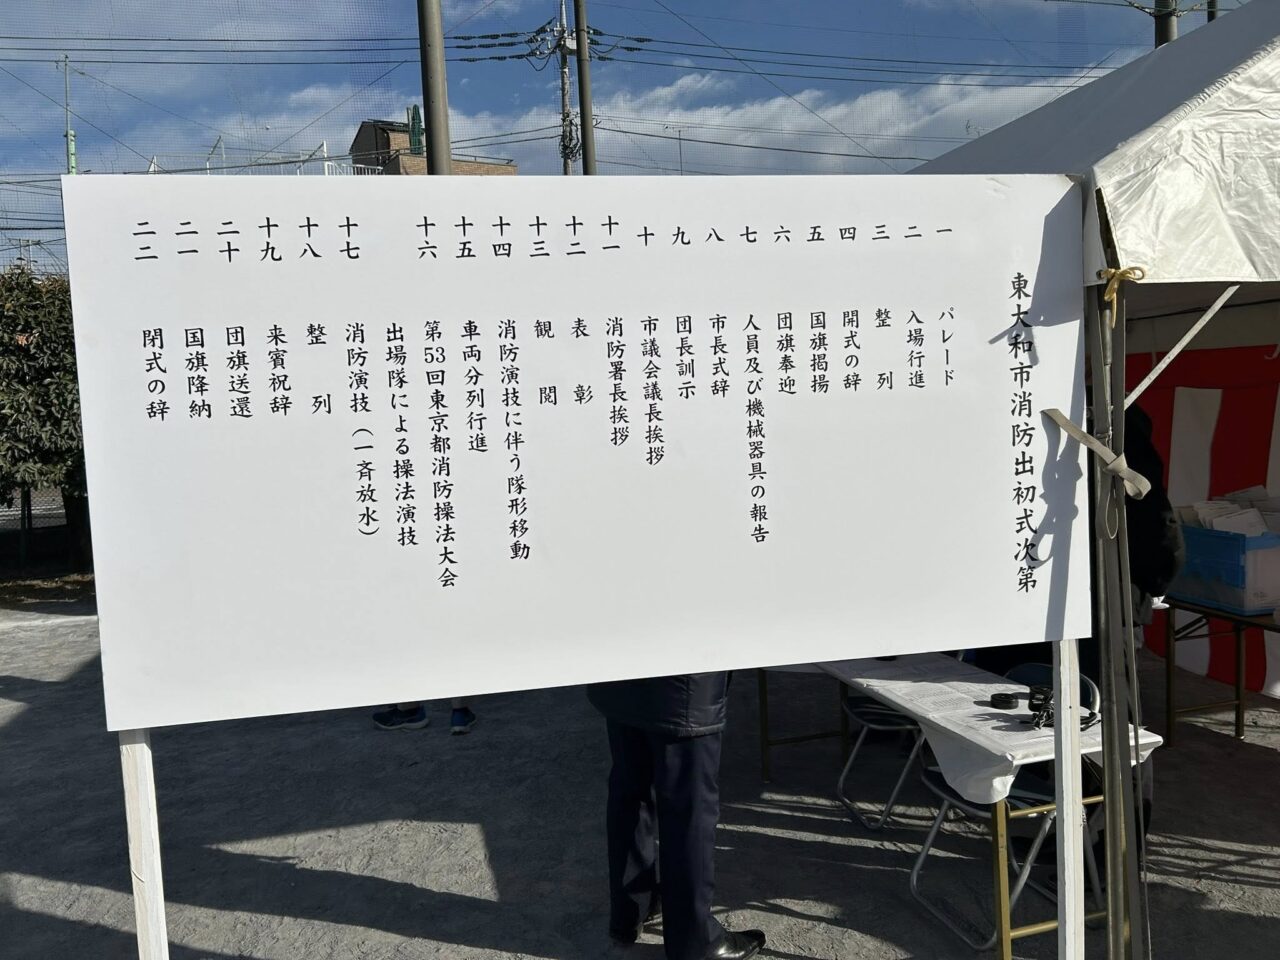 東大和市消防出初式次第
一 パレード
二 入場行進
三 整列
四 開式の辞
五 国旗掲揚
六 団旗奉迎
七 人員及び機械器具の報告
八 市長式辞
九 団長訓示
十 市議会議長挨拶
十一 消防署長挨拶
十二 表彰
十三 観閲
十四 消防演技に伴う隊形移動
十五 車両分列行進
十六 第53回東京都消防操法大会
出場隊による操法演技
十七 消防演技（一斉放水）
十八 整列
十九 来賓祝辞
二十 団旗送還
二一 国旗降納
二二 閉式の辞